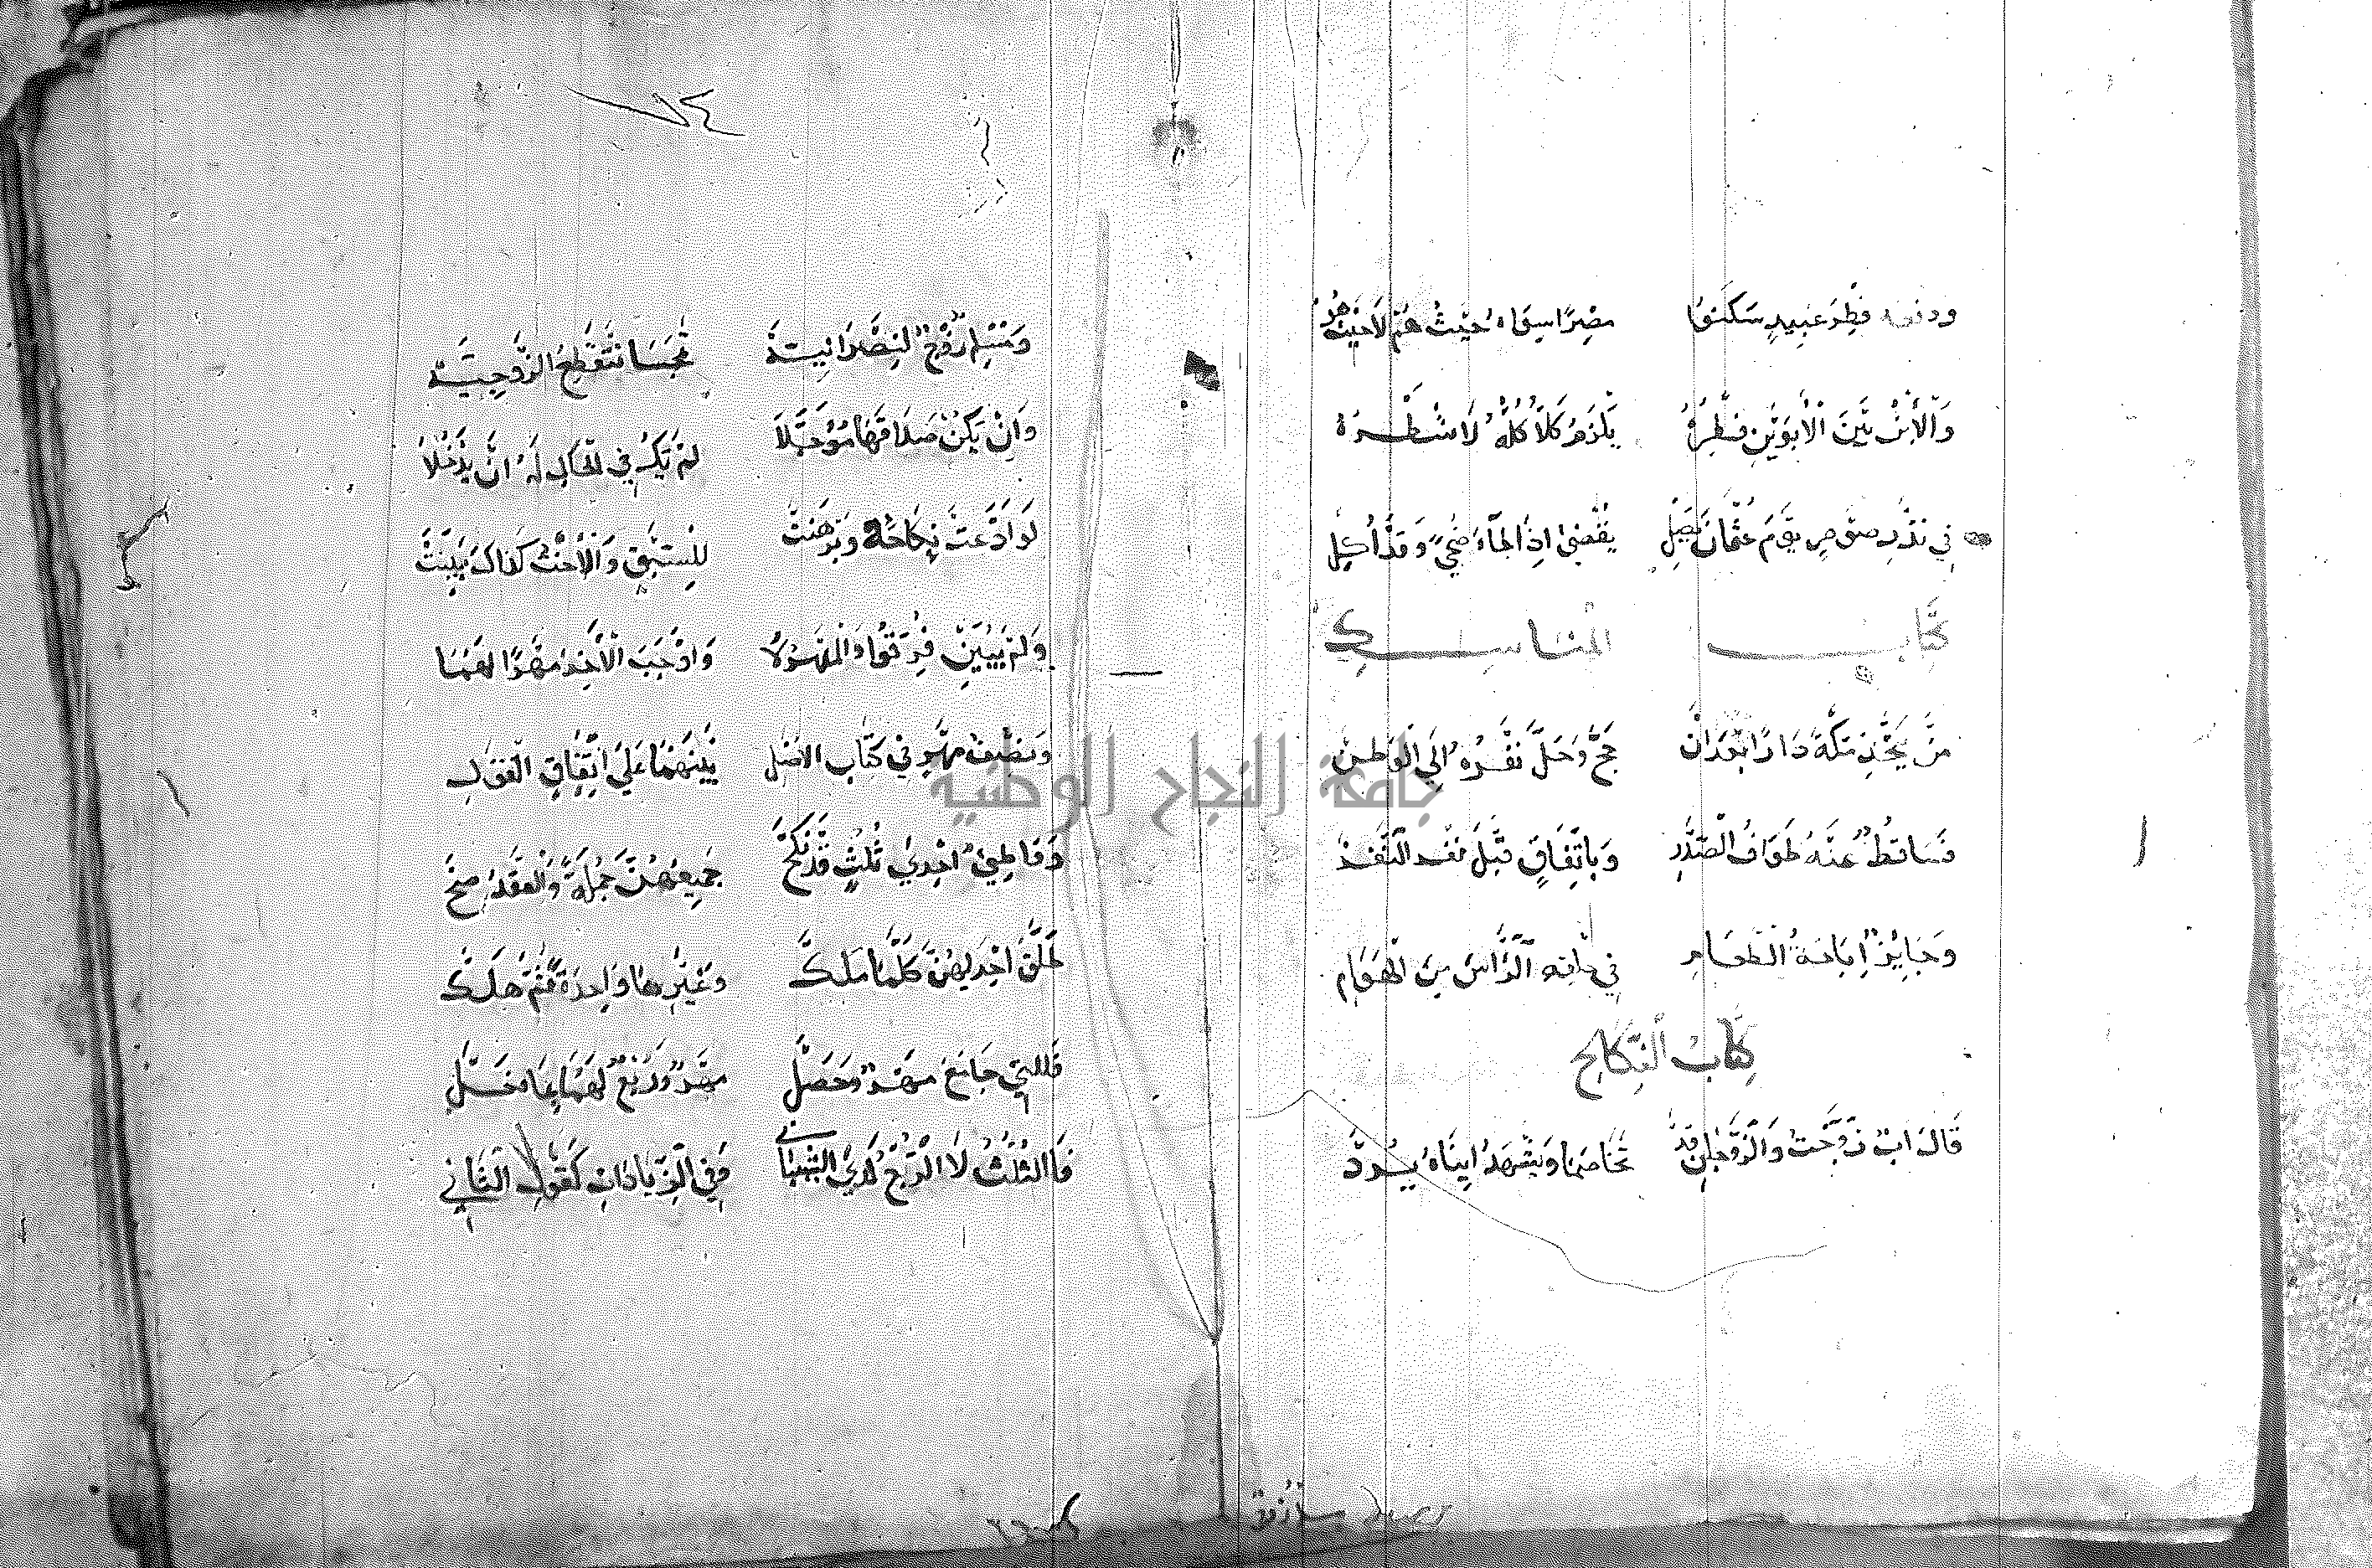 ودفعه فطر عبيد سكنوا مصرا سواه حيث هم لا حيث هو
والابن بين الابوين فطره يلزم كلا كله لا شطره
في نذر صوم يوم يقضى اذا جاء ضحى وقد اكل
كتاب المناسك
من يتخذ مكة دارا بعد ان حج وحل نفره الى الوطن
فساقط عنه طواف الصدر وباتفاق قبل نفر النفر
وجايز اباحة الطعام في حلقه الرأس من الهوام
كتاب النكاح
قال اب زوجت والزوجان قد تخاصما ويشهد ابناه يرد
ومسلم زوج لنصرانية تمجسا تنقطع الزوجية
وان يكن صداقها مؤجلا لم يك في الحال له ان يدخلا
لو ادعت نكاحه وبرهنت للسبق والاخت كذاك بينت
ولم يبين فرقوا والمهر لا واوجب الاخير مهرا لهما
ونصف مهر في كتاب الاصل بينهما على اتفاق القول
وفاطمي احدي ثلث قد نكح جميعهن جملة والعقد صح
طلق احديهن كلما ملك وغيرها واحدة ثم هلك
فللتي جامع مهر وحصل مهر وربع لهما بما دخل
فالثلث لا الربع لدى الشيباني وفي الزيادات كقول الثاني
جامعة النجاح الوطنية